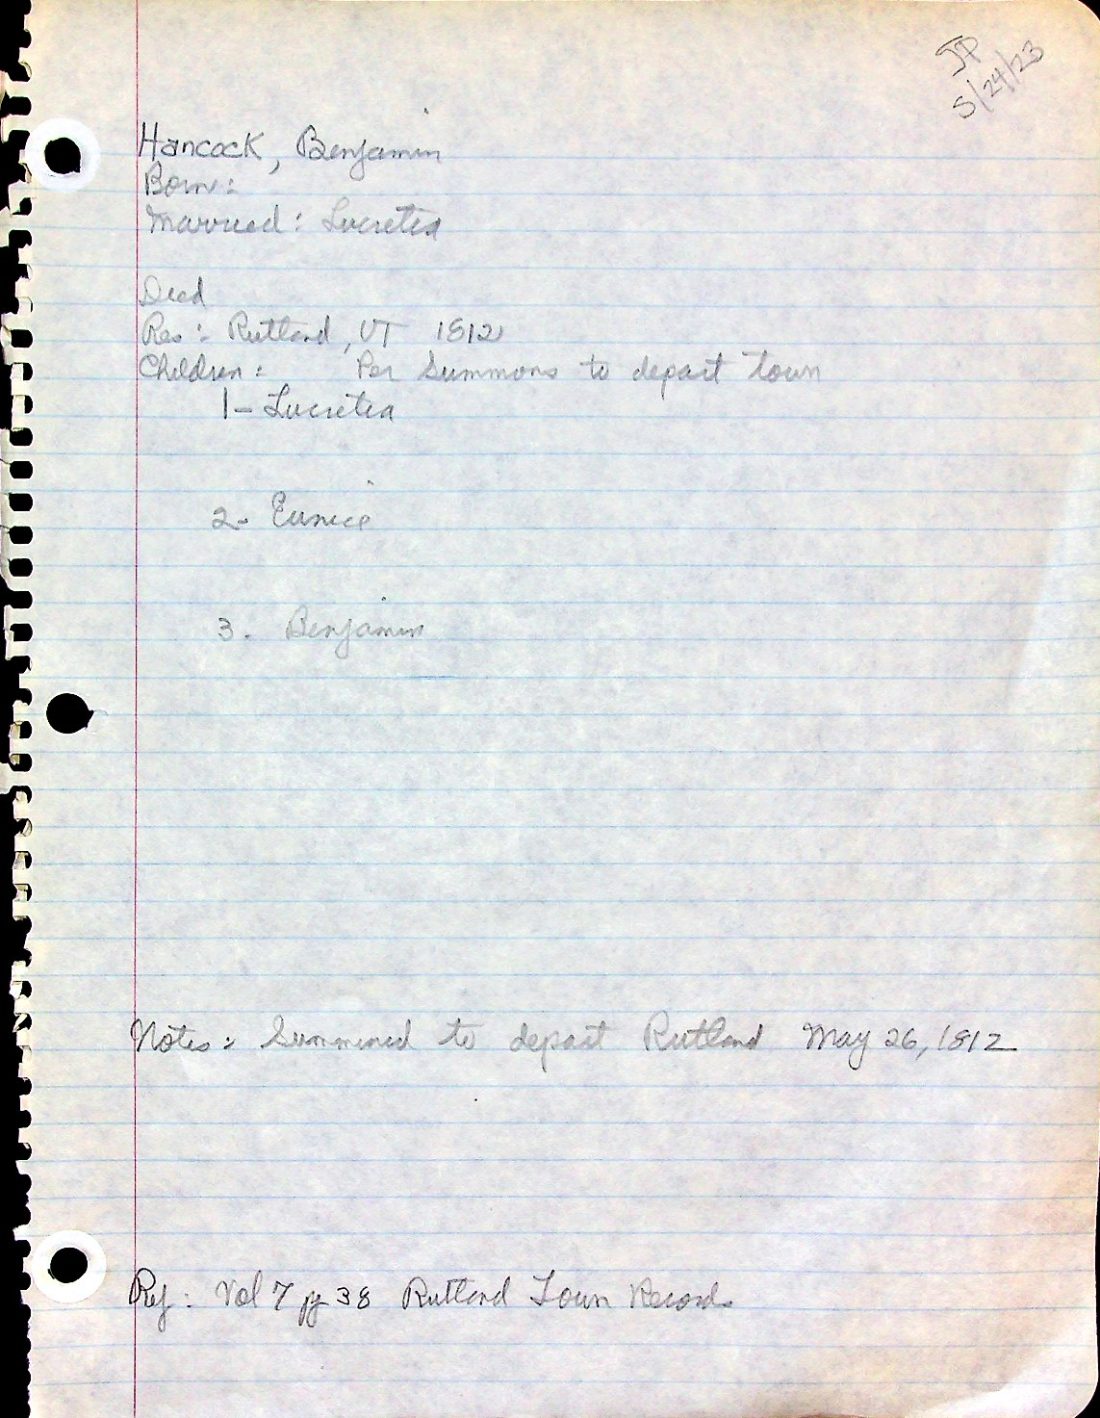 JP
5/24/23
Hancock, Benjamin
Born:
Married: Lucretia
Died
Res: Rutland, VT 1812
Children: Per Summons to depart town
1- Lucretia
2- Eunice
3. Benjamin
Notes: Summined to depart Rutland May 26, 1812
Ref: Vol 7 pg 38 Rutland Town Records